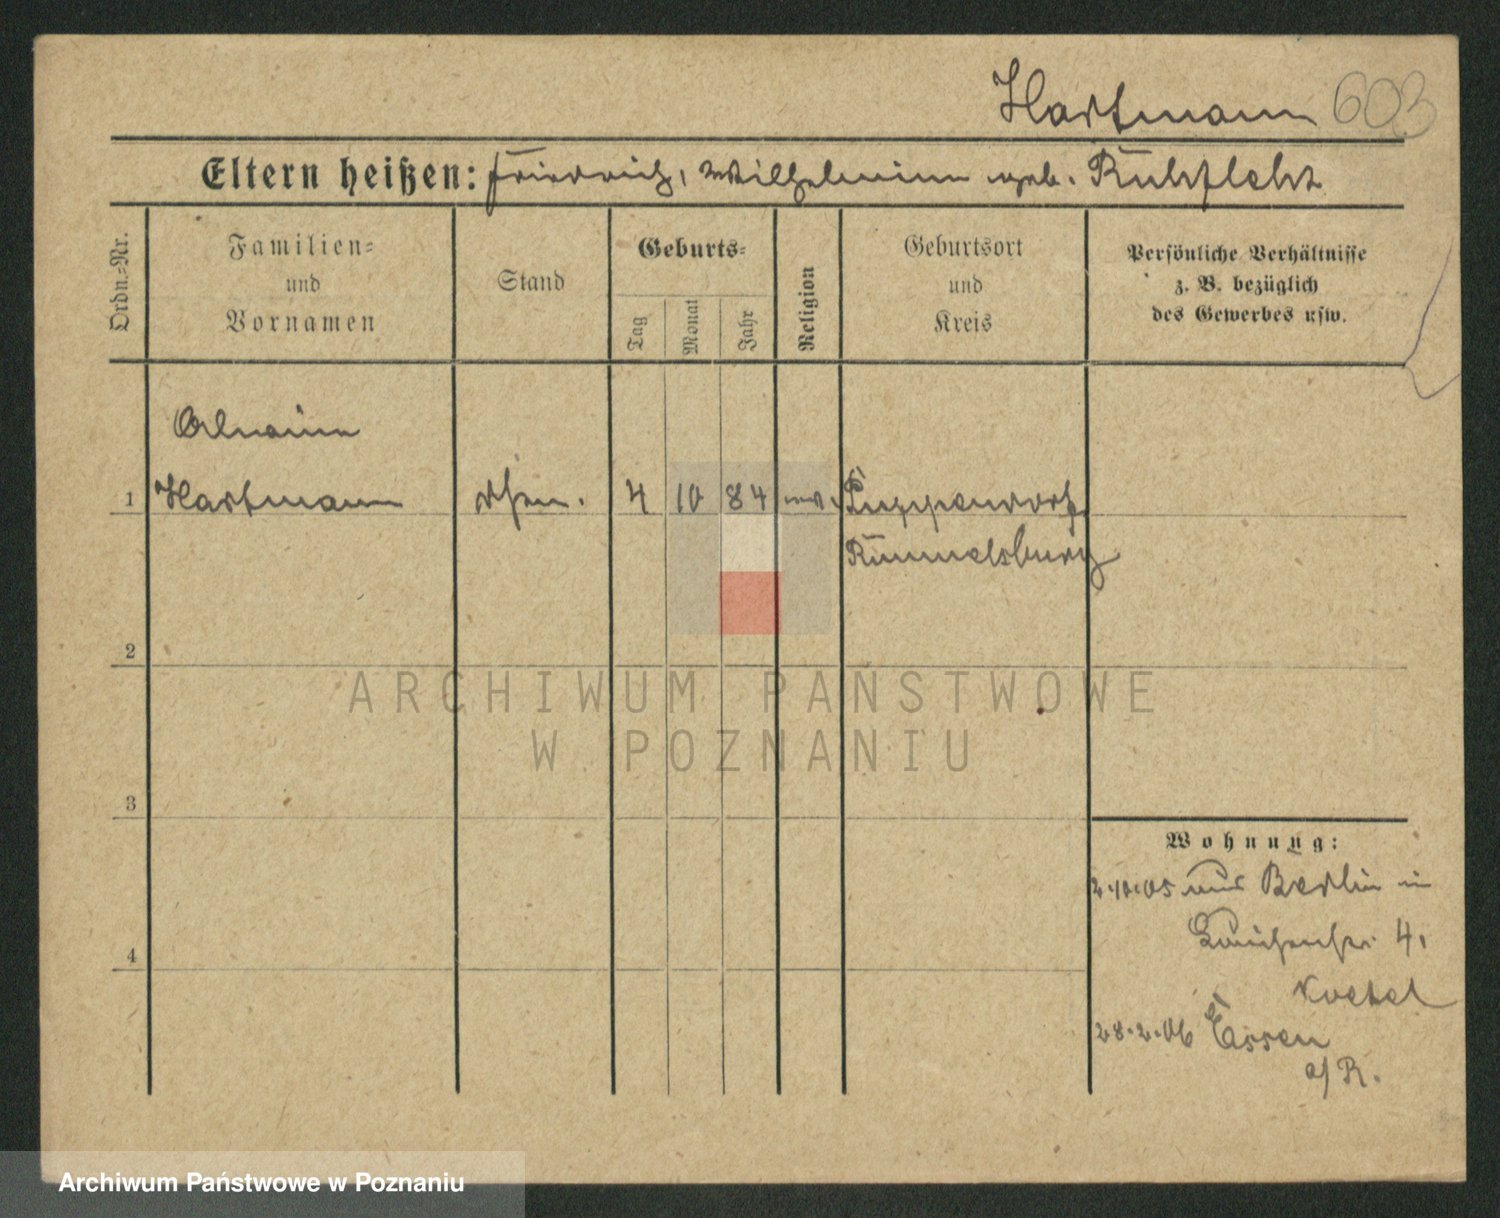 Hartmann 603
Eltern heißen: Friedrich, Wilhelmine geb.
Ordn.-Nr.
Familien-
und
Vornamen
Stand
Geburts-
Tag
Monat
Jahr
Religion
Geburtsort
und
Kreis
Persönliche Verhältnisse
z. B. bezüglich
des Gewerbes usw.
1 Hartmann 4 10 84 Puppendorf
Rummelsburg
2
3
4
Wohnung:
2.10.05 aus Berlin in
4,
28.2.06 Essen
a/R.
ARCHIWUM PAŃSTWOWE
W POZNANIU
Archiwum Państwowe w Poznaniu